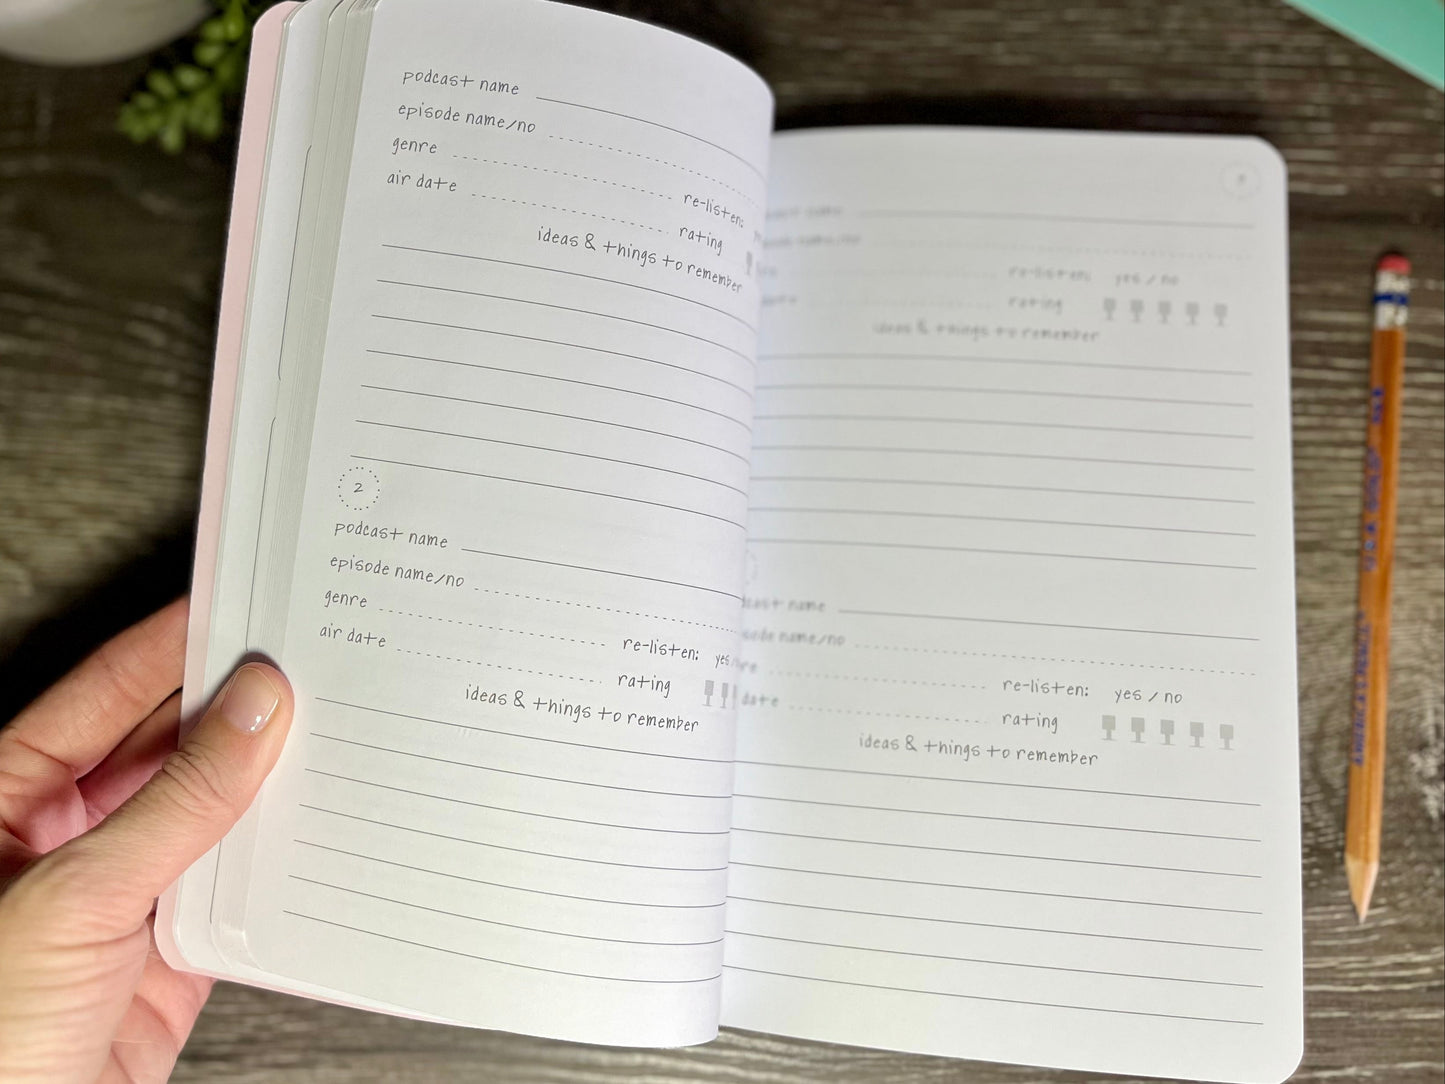 podcast name
episode name/no
genre
re-listen:
air date
rating
ideas & things to remember
2
podcast name
episode name/no
genre
re-listen: yes
air date
rating
ideas & things to remember
name
name/no
re-listen: yes / no
rating
ideas & things to remember
name
name/no
re-listen: yes / no
date
rating
ideas & things to remember